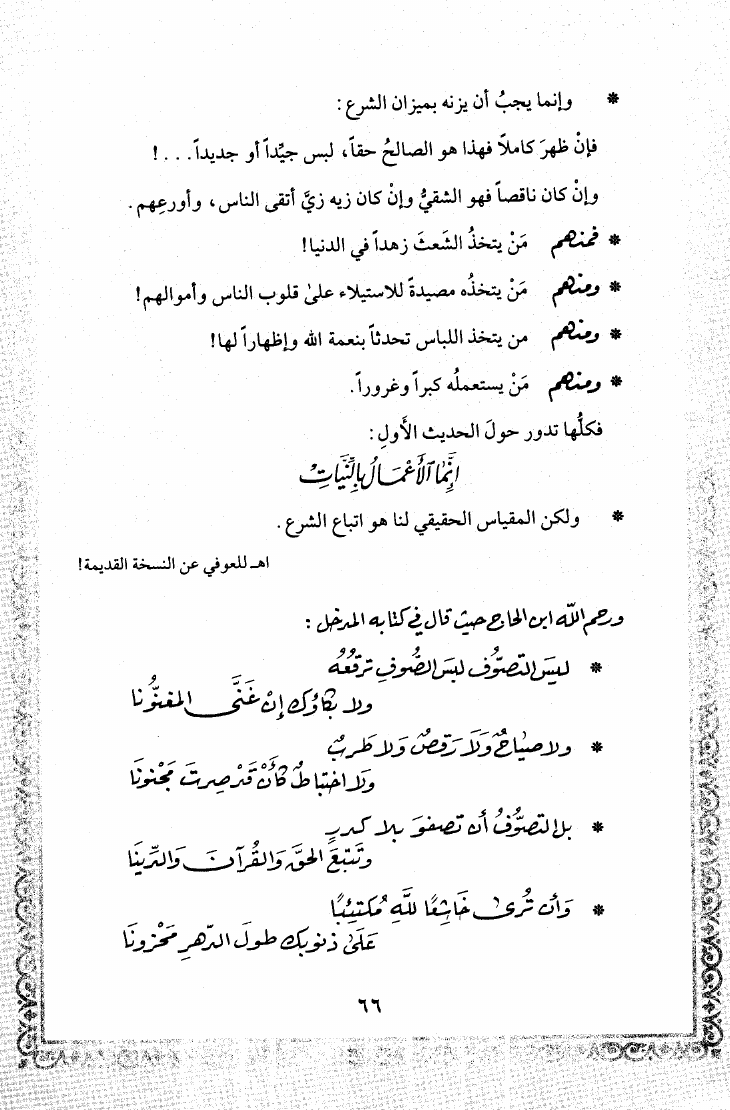 * وإنما يجبُ أن يزنه بميزان الشرع:
فإنْ ظهرَ كاملاً فهذا هو الصالحُ حقاً، لبس جيِّداً أو جديداً...!
وإنْ كان ناقصاً فهو الشقيُّ وإنْ كان زيه زيَّ أتقى الناس، وأورعِهم.
* فمنهم مَنْ يتخذُ الشَعثَ زهداً في الدنيا!
* ومنهم مَنْ يتخذُه مصيدةً للاستيلاء علىٰ قلوب الناس وأموالهم!
* ومنهم من يتخذ اللباس تحدثاً بنعمة الله وإظهاراً لها!
* ومنهم مَنْ يستعملُه كبراً وغروراً.
فكلُّها تدور حولَ الحديث الأَولِ:
إِنَّمَا ٱلْأَعْمَالُ بِالنِّيَّاتِ
* ولكن المقياس الحقيقي لنا هو اتباع الشرع.
اهـ للعوفي عن النسخة القديمة!
ورحم الله ابن الحاج حيث قال في كتابه المدخل:
* ليسَ التصوُّف لبسَ الصُّوفِ ترقعُهُ
ولا بكاؤك إن غَنَّى المغنُّونا
* ولا صياحٌ وَلَا رَقصٌ وَلا طَربٌ
وَلا اختباطٌ كأَنْ قَدْ صِرتَ مَجْنونَا
* بل التصوُّفُ أن تصفوَ بلا كدرٍ
وتَتبعَ الحقَّ وَالقُرآنَ وَالدِّينَا
* وَأن تُرىٰ خَاشِعًا للَّهِ مُكتئِبًا
عَلَىٰ ذنوبك طولَ الدّهرِ مَحْزونَا
٦٦